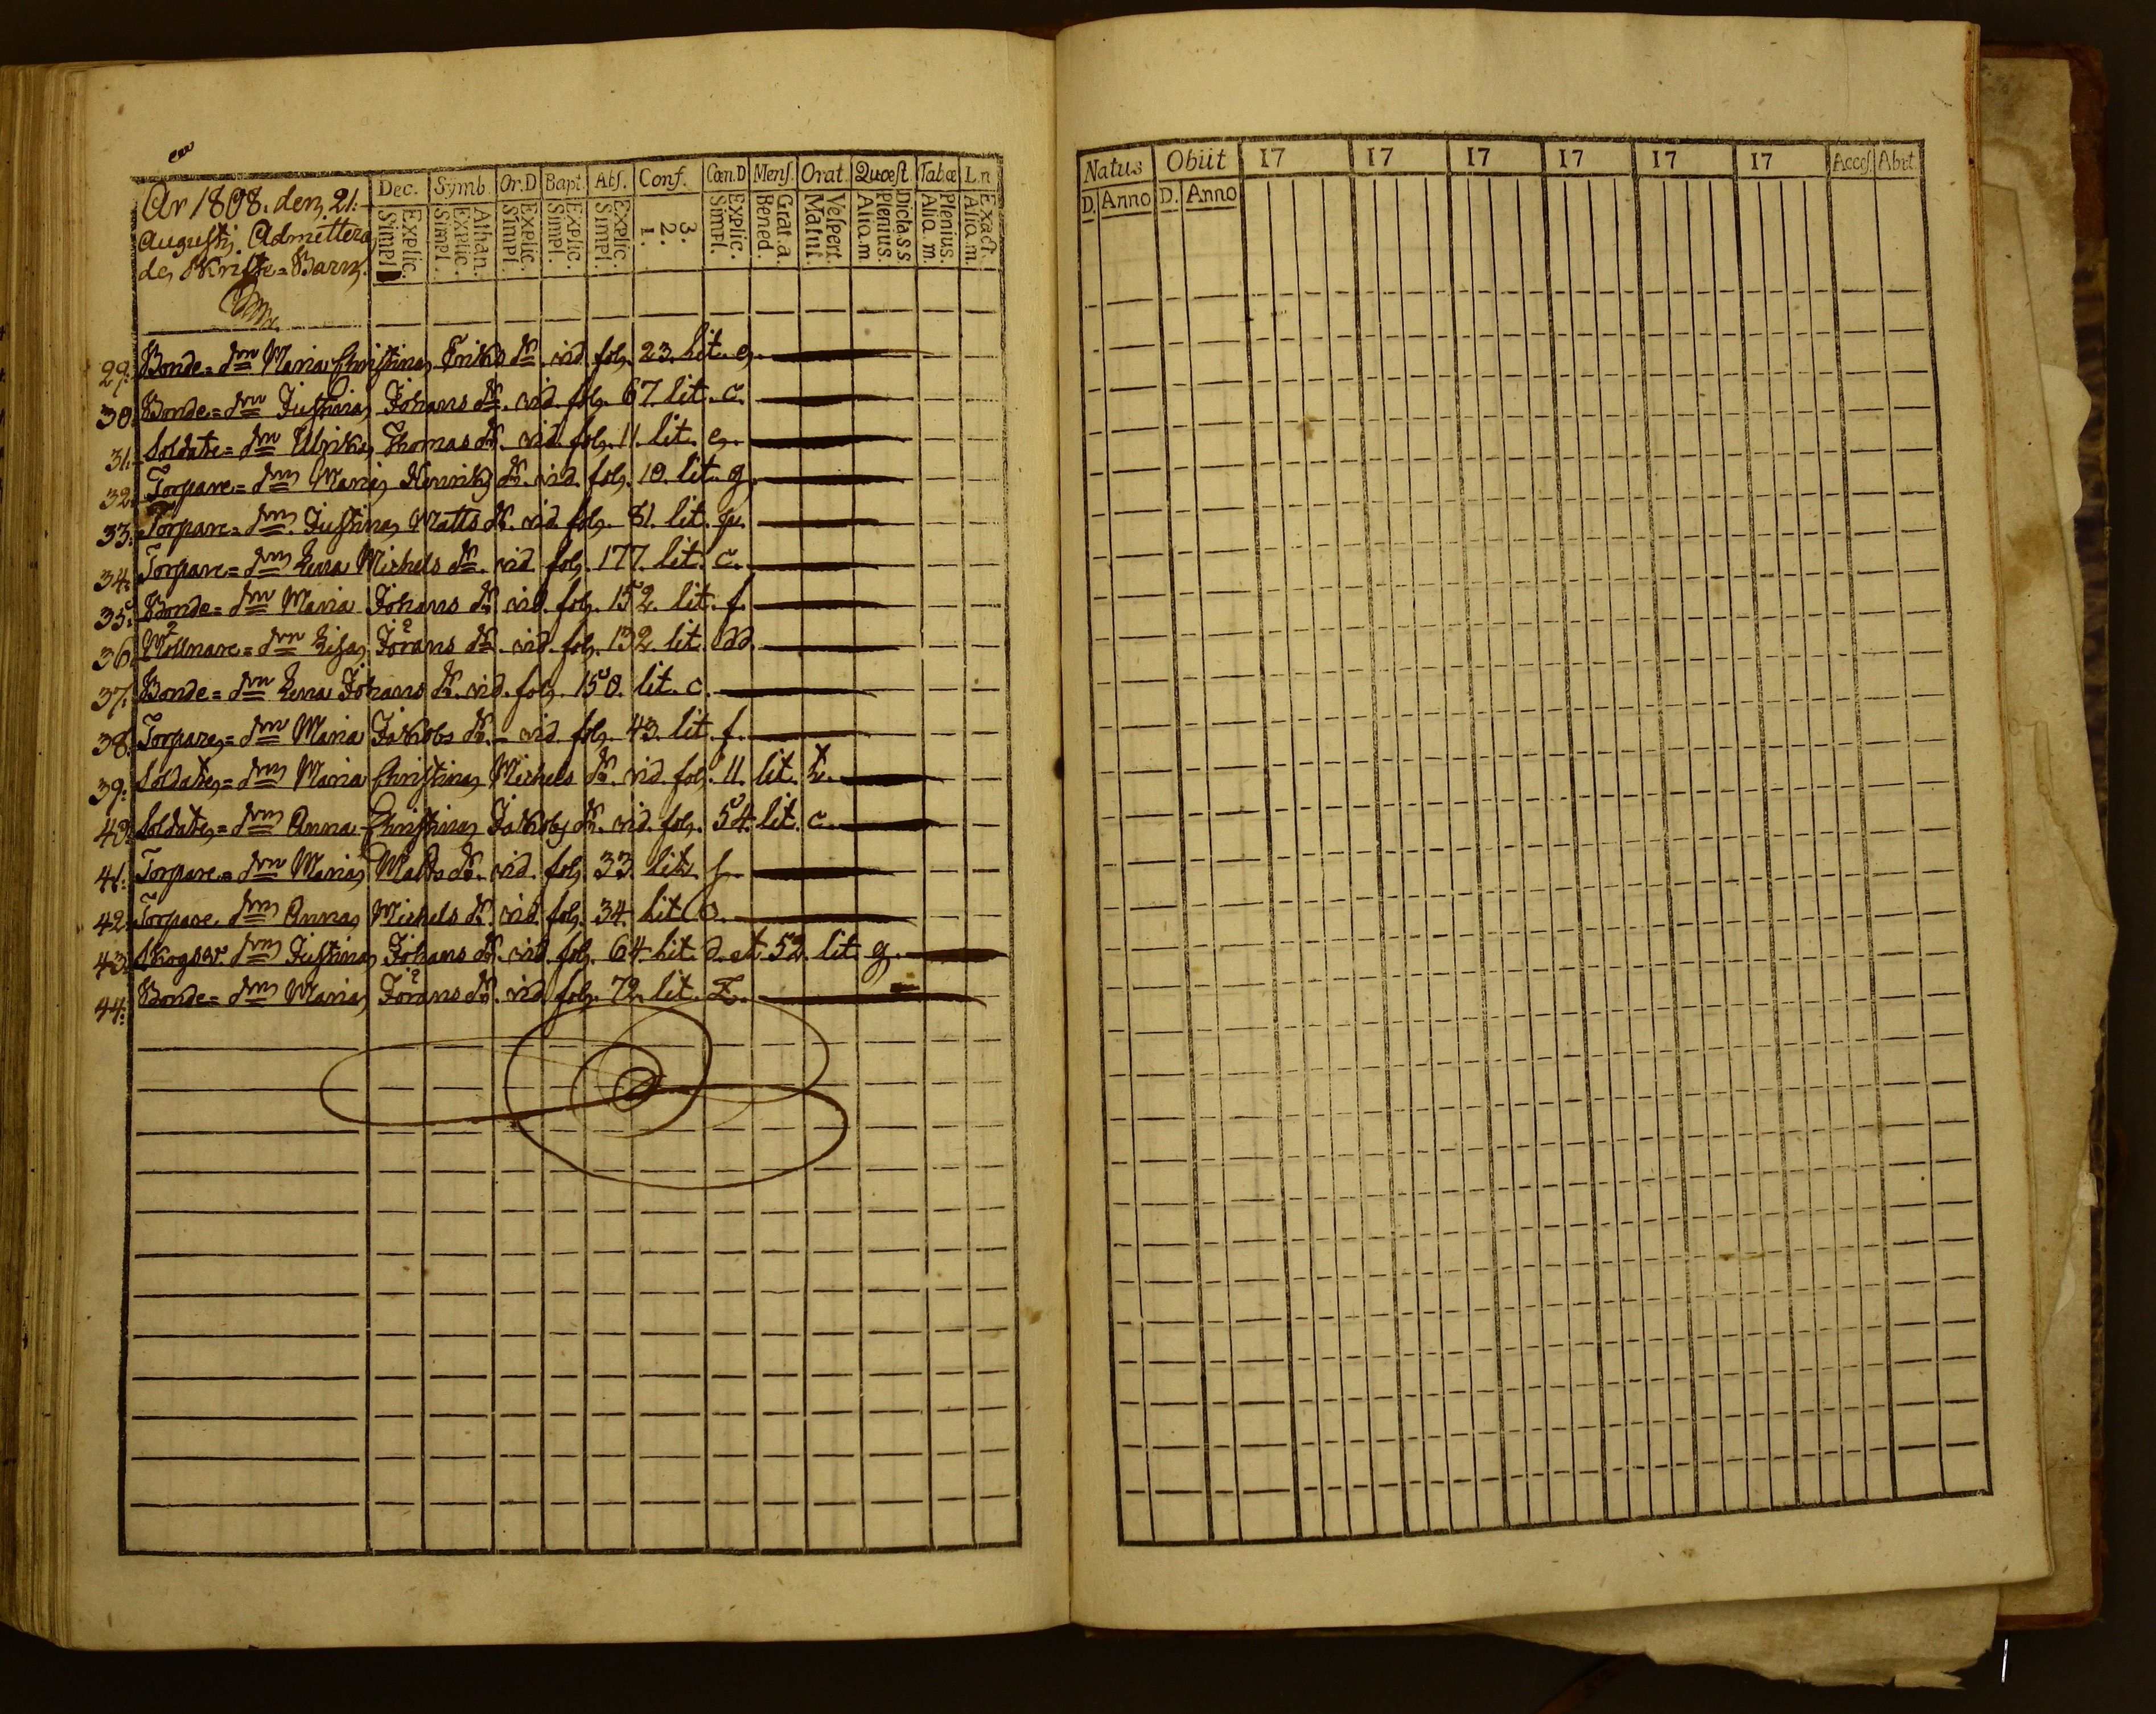 År 1808. den 21:
Augustj Admitterade
Skrifte=Barn.
Dec. Symb. Or.D Bapt. Abs. Conf. Cœn.D Mens. Orat. Quæst. Tab.œ L.n
Simpl. Explic. Simpl. Explic. Athan. Simpl. Explic. Simpl. Explic. Simpl. Explic. 1. 2. 3. Simpl. Explic. Bened. Grat.a. Matut. Vespert. Aliq.m Plenius. Dicta.S.S. Aliq.m. Plenius. Aliq.m. Exact.
29: Bonde=drn Maria Christina Eriks dr. vid. fol. 23. lit. e.
30. Bonde=drn Justina Johans dr. vid. fol. 67. lit. c.
31. Soldate=drn Ulrika Thomas dr. vid. fol. 11. lit. e.
32. Torpare=drn Maria Henriks dr. vid. fol. 10. lit. g.
33. Torpare=drn Justina Matts dr. vid. fol. 81. lit.
34. Torpare=drn Lena Michels dr. vid. fol. 177. lit. c.
35. Bonde=drn Maria Johans dr. vid. fol. 152. lit. f.
36. Möllnare=drn Lisa Jörans dr. vid. fol. 132. lit. dd.
37. Bonde=drn Lena Johans dr. vid. fol. 150. lit. c.
38. Torpare=drn Maria Jakobs dr. vid. fol. 43. lit. f.
39. Soldate=drn Maria Christina Michels dr. vid. fol. 11. lit.
40. Soldate=drn Anna Christina Jakobs dr. vid. fol. 54. lit. c.
41. Torpare=drn Maria Matts dr. vid. fol. 33. lit.
42. Torpare drn Anna Michels dr. vid. fol. 34. lit.
43. drn Justina Johans dr. vid. fol. 64. lit. d. et 52. lit. g.
44. Bonde=drn Maria Jörans dr. vid. fol. 72. lit. z.
Natus Obiit 17 17 17 17 17 17 Acces. Abit.
D. Anno D. Anno